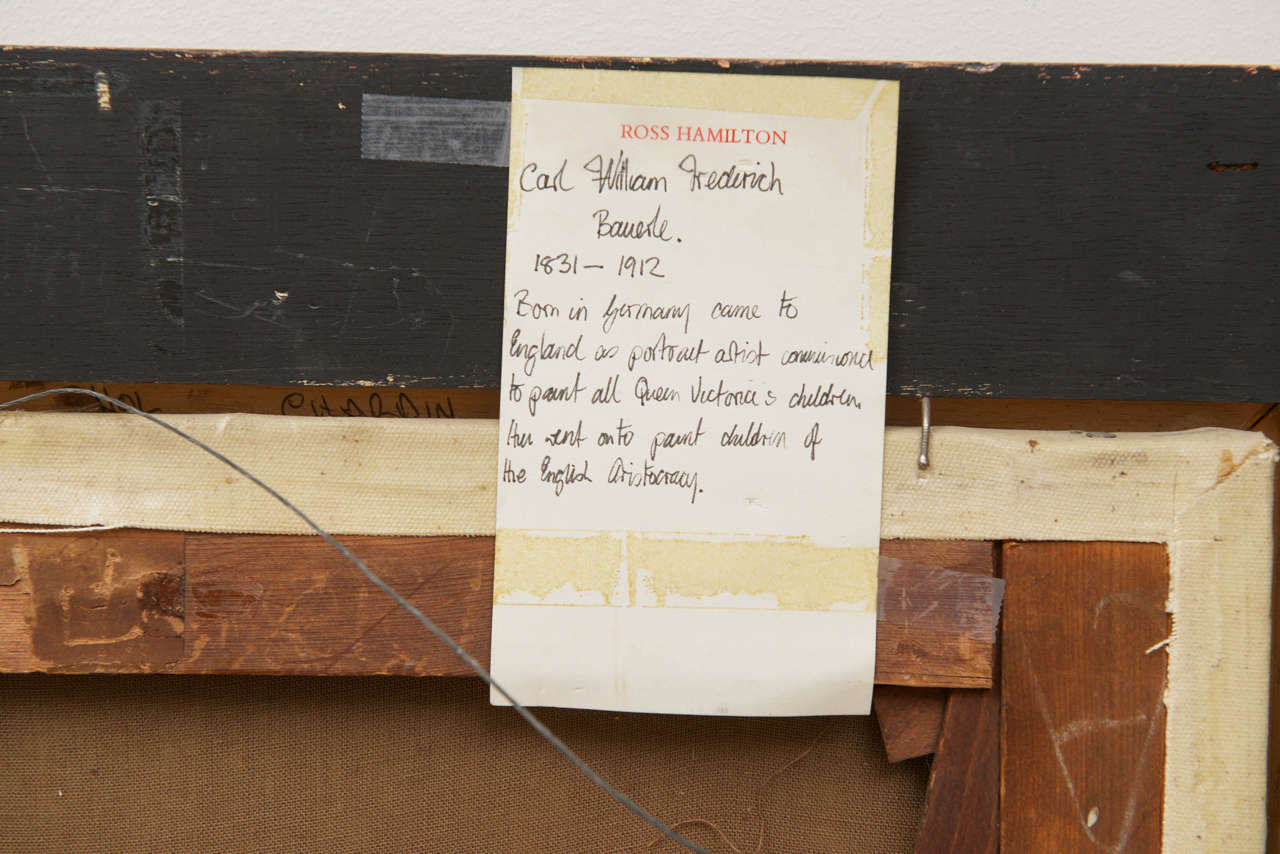 ROSS HAMILTON
Carl William Frederich
Bauerle.
1831 — 1912
Born in Germany came to
England as portrait artist commissioned
to paint all Queen Victoria's children.
went onto paint children of
the English Aristocracy.
CHARDIN